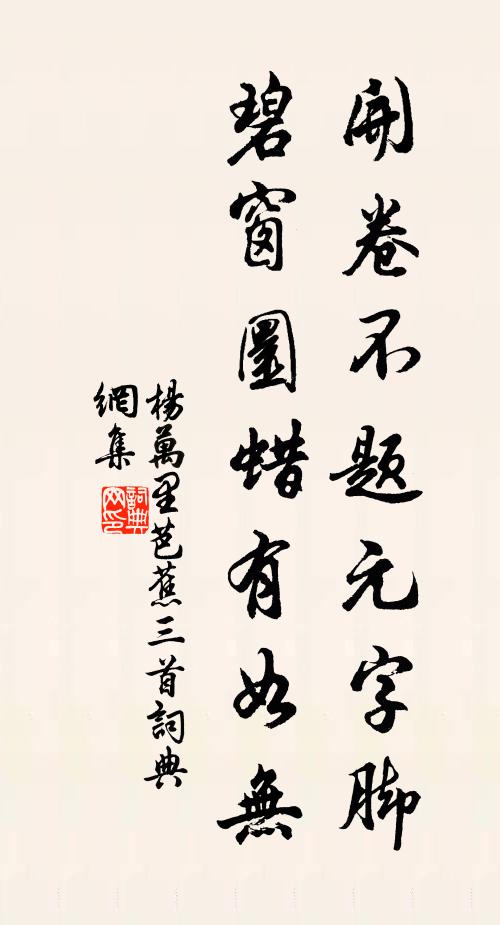 開卷不題元字脚
碧窗圖蜡有如無
楊萬里芭蕉三首詞典
網集
詞典
网印